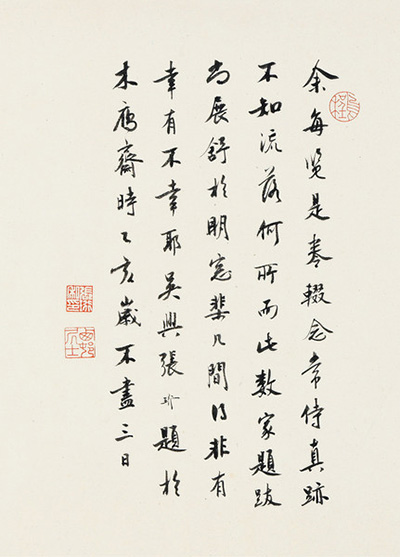 余每覽是卷輟念常侍真跡
不知流落何所而此數家題跋
尚展舒於明窓棐几間得非有
幸有不幸耶吳興張珩題於
木鴈齋時乙亥歲不盡三日